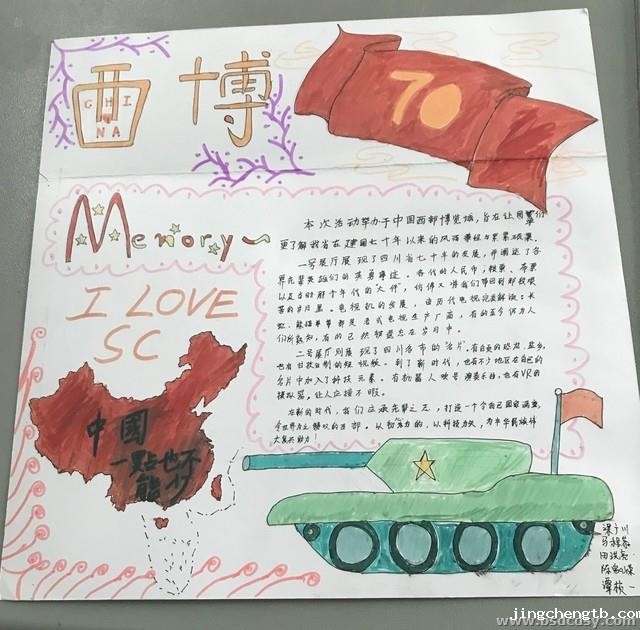 西博
CHI
NA
70
Memory
I LOVE
SC
本次活动举办于中国西部博览城,旨在让同学们
更了解我省在建国七十年以来的风雨兼程与累累硕果。
一号展厅展现了四川省七十年的发展,并阐述了各
界先辈英雄们的英勇事迹。各代的人民币,粮票、布票
以及当时那个年代的"大件",仿佛又将我们带回到那段艰
苦的岁月里。电视机的发展,由历代电视完美解读:长
虹、熊猫等等都是老代电视生产厂商,有的至今仍为人
们所熟知,有的已然被遗忘在岁月中。
二号展厅则展现了四川各市的"名片",有自贡的恐龙、盐乡,
也有甘孜自制的短视频。到了新时代,也有不少地区在自己的
名片中加入了科技元素。有机器人吹号演奏乐曲,也有VR的
模拟器,让人应接不暇。
在新的时代,我们应承先辈之志,打造一个令自己国家满意,
令世界为之赞叹的西部,以智
为中华民族伟
大复兴助力!
中國
一點也不
能少
梁广川
田洪
陈
谭
www.bsdcdsy.com
jingchengtb.com